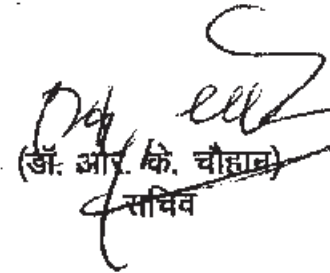 (डॉ. आर. के. चौहान)
सचिव